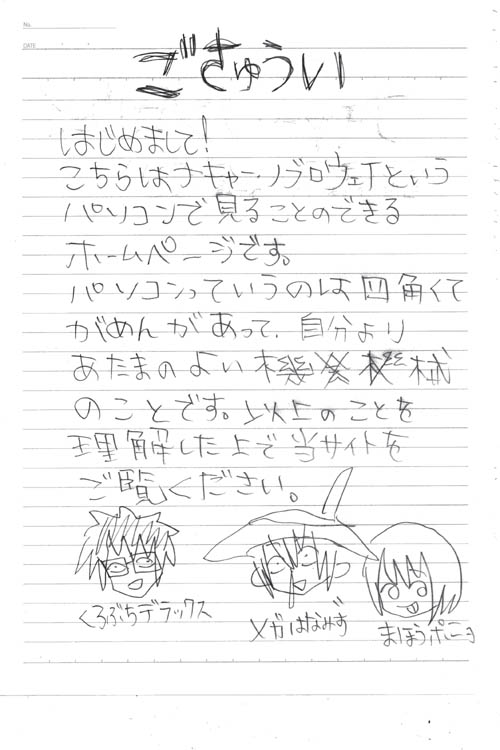 No.
DATE
ごきゅうい
はじめまして!
こちらはナキャー・ノブロウェTという
パソコンで見ることのできる
ホームページです。
パソコンっていうのは四角くて
がめんがあって、自分より
あたまのよい機械
のことです。以上のことを
理解した上で当サイトを
ご覧ください。
くろぶちデラックス
メガはなみず
まほうポニョ